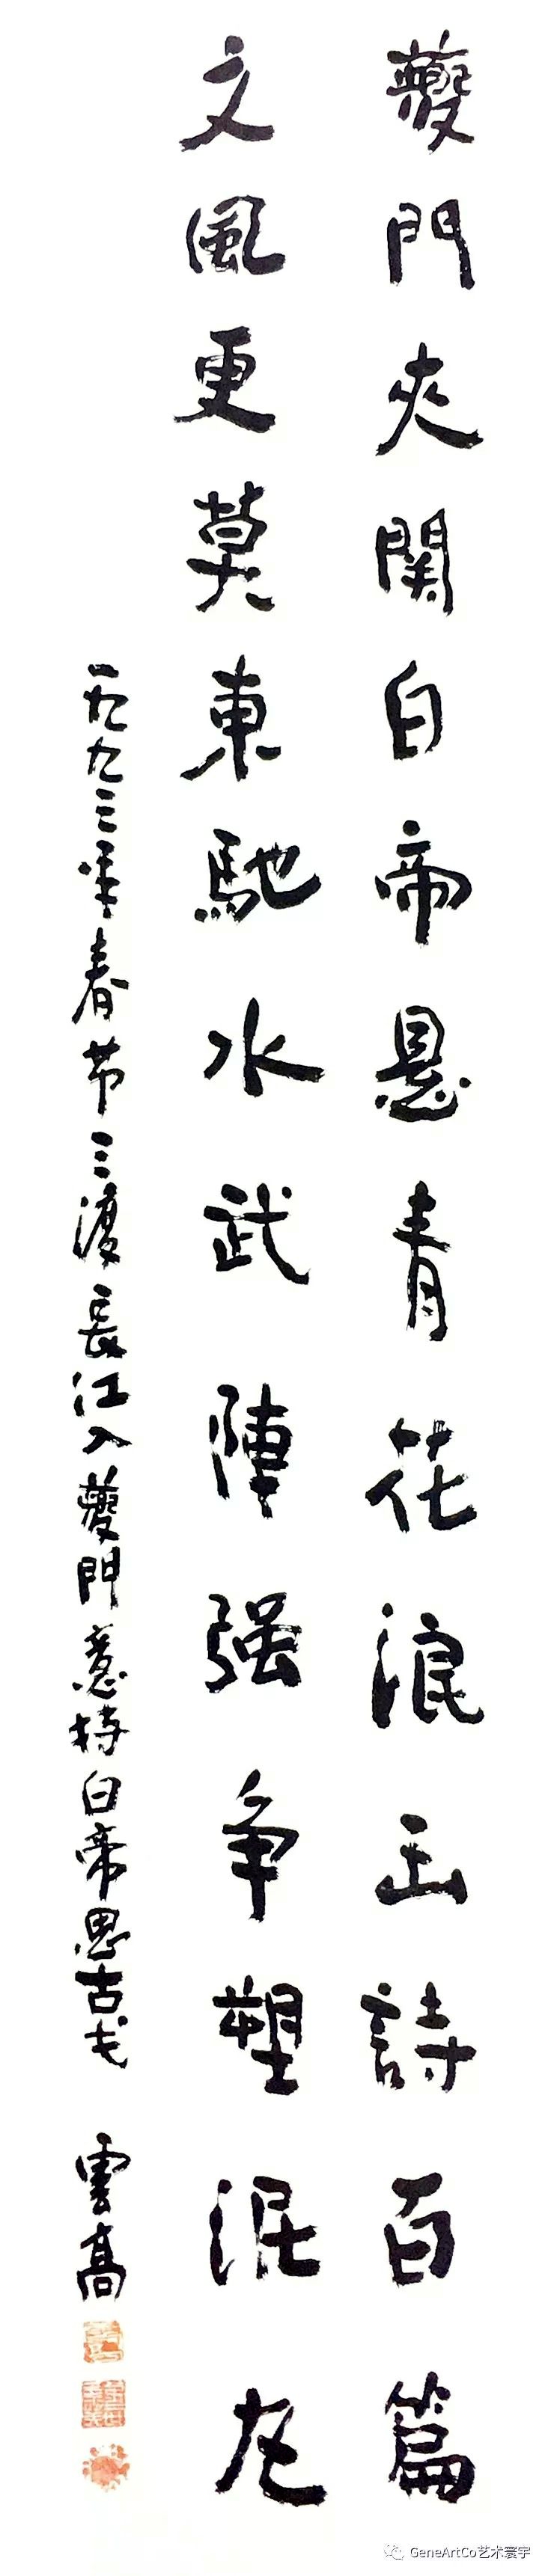 夔門夾関白帝懸青花浪玉詩百篇
文風更莫東馳水武陣强争塑泥丸
一九九三年春节三渡長江入夔門意持白帝思古戈
雲高
GeneArtCo艺术寰宇